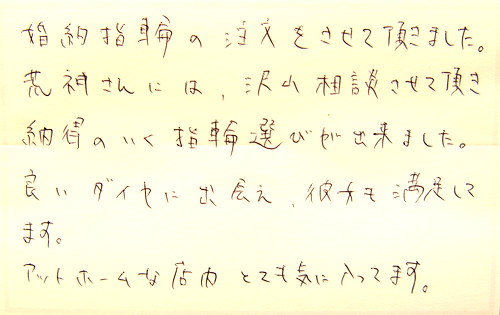 婚約指輪の注文をさせて頂きました。
荒神さんには、沢山相談させて頂き
納得のいく指輪選びが出来ました。
良いダイヤに出会え、彼女も満足して
ます。
アットホームな店内とても気に入ってます。